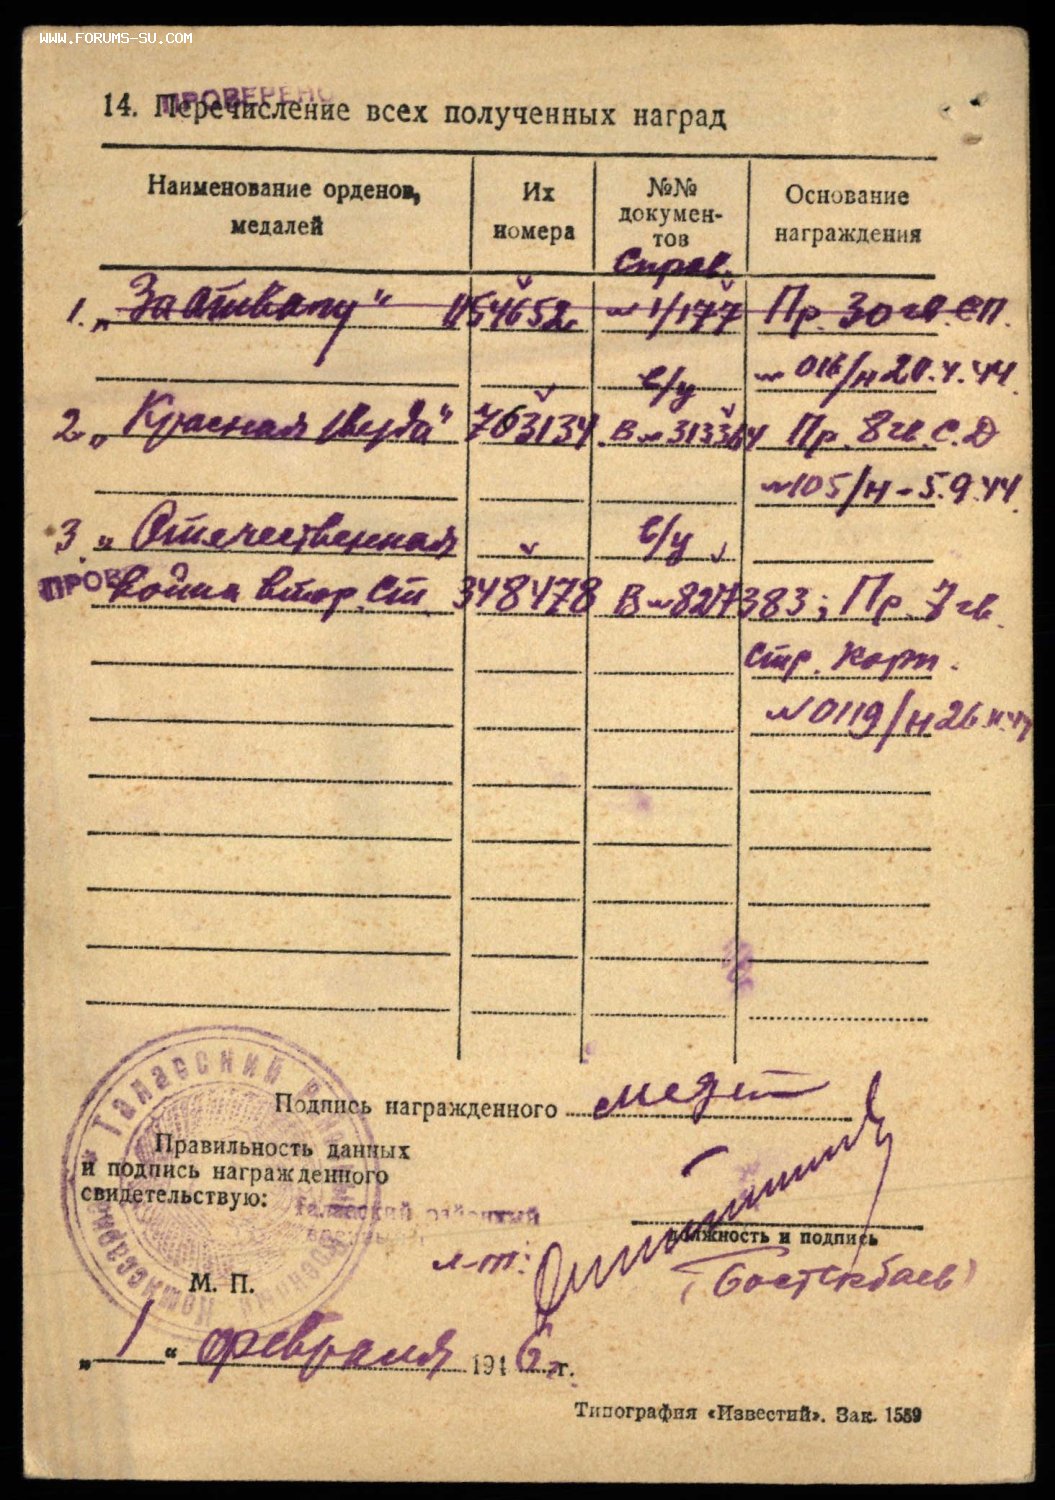 WWW.FORUMS-SU.COM
ПРОВЕРЕНО
14. Перечисление всех полученных наград
Наименование орденов, медалей
Их номера
№№ докумен-тов
Основание награждения
Справ.
1. „За отвагу" 1154652 № 1/177 Пр. 30 гв. СП.
в/у № 016/н 20.4.44
2. „Красная звезда" 763134 В № 313364 Пр. 8 гв. С. Д
№ 105/н - 5.9.44
3 „Отечественная в/у
ПРОВЕ
война втор. ст. 348478 В № 827383; Пр. 7 гв.
стр. корп.
№ 0119/н 26.11.44
Подпись награжденного
Правильность данных
и подпись награжденного
свидетельствую:
Таласский районный
Таласский
Военный Комиссариат
должность и подпись
л-т:
(Бостекбаев)
М. П.
„1" февраля 1946 г.
Типография «Известий». Зак. 1559